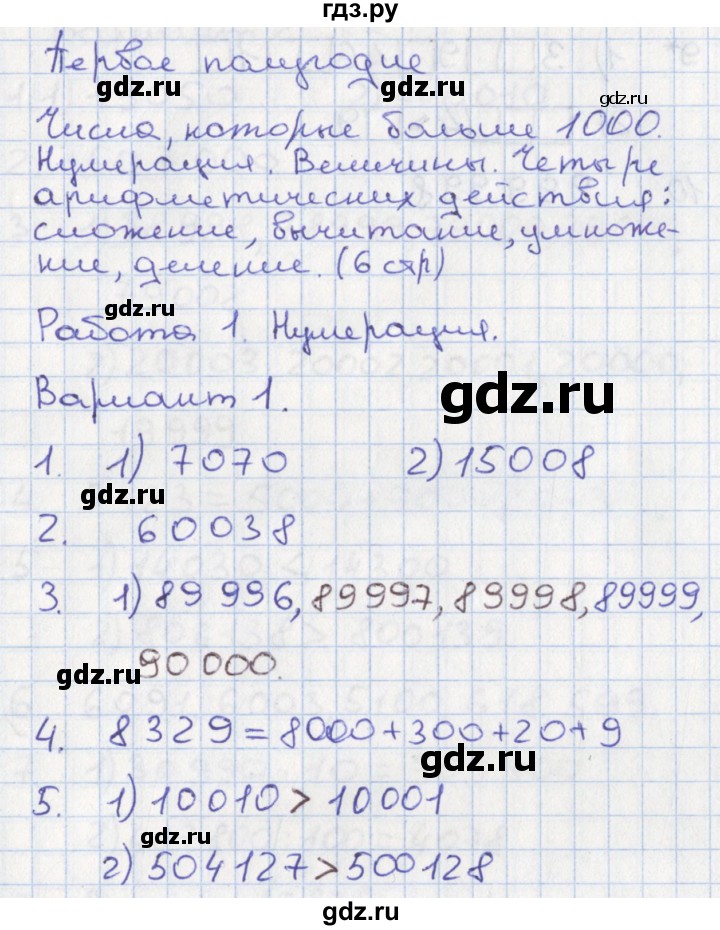 гдз.ру
Первое полугодие
gdz.ru gdz.ru gdz.ru
Числа, которые больше 1000.
Нумерация. Величины. Четыре
арифметических действия:
сложение, вычитание, умноже-
ние, деление. (6 стр)
gdz.ru gdz.ru
Работа 1. Нумерация.
Вариант 1.
gdz.ru
1. 1) 7070 2) 15008
gdz.ru
2. 60038
3. 1) 89 996, 89997, 89998, 89999,
90 000.
gdz.ru
4. 8329 = 8000 + 300 + 20 + 9
gdz.ru
5. 1) 10010 > 10001
gdz.ru
2) 504127 > 500128
gdz.ru